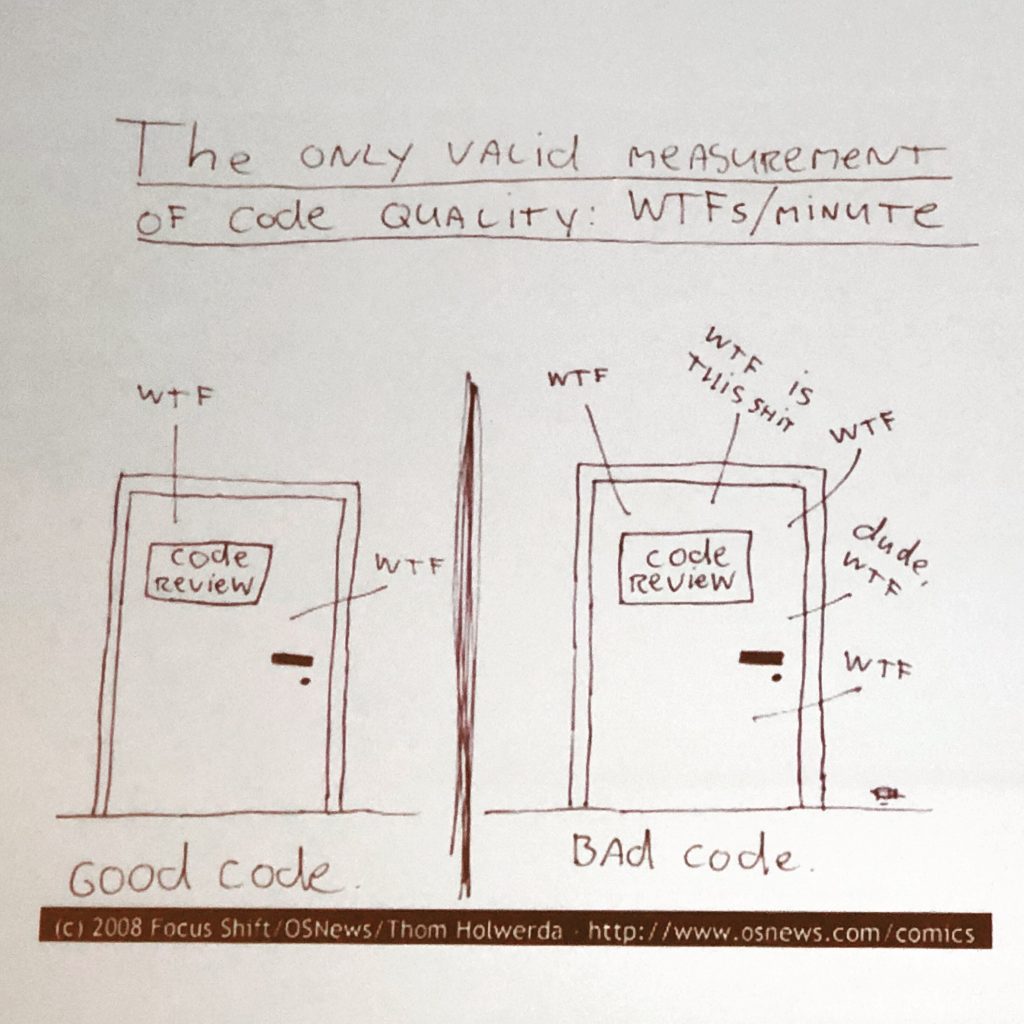 The ONLY VALid MEASUREMENT
OF Code QUALITY: WTFs/MINUTE
WTF
code
REVIEW
WTF
Good code.
WTF
WTF is
THIS SHIT
WTF
dude,
WTF
code
REVIEW
WTF
BAd code.
(c) 2008 Focus Shift/OSNews/Thom Holwerda - http://www.osnews.com/comics